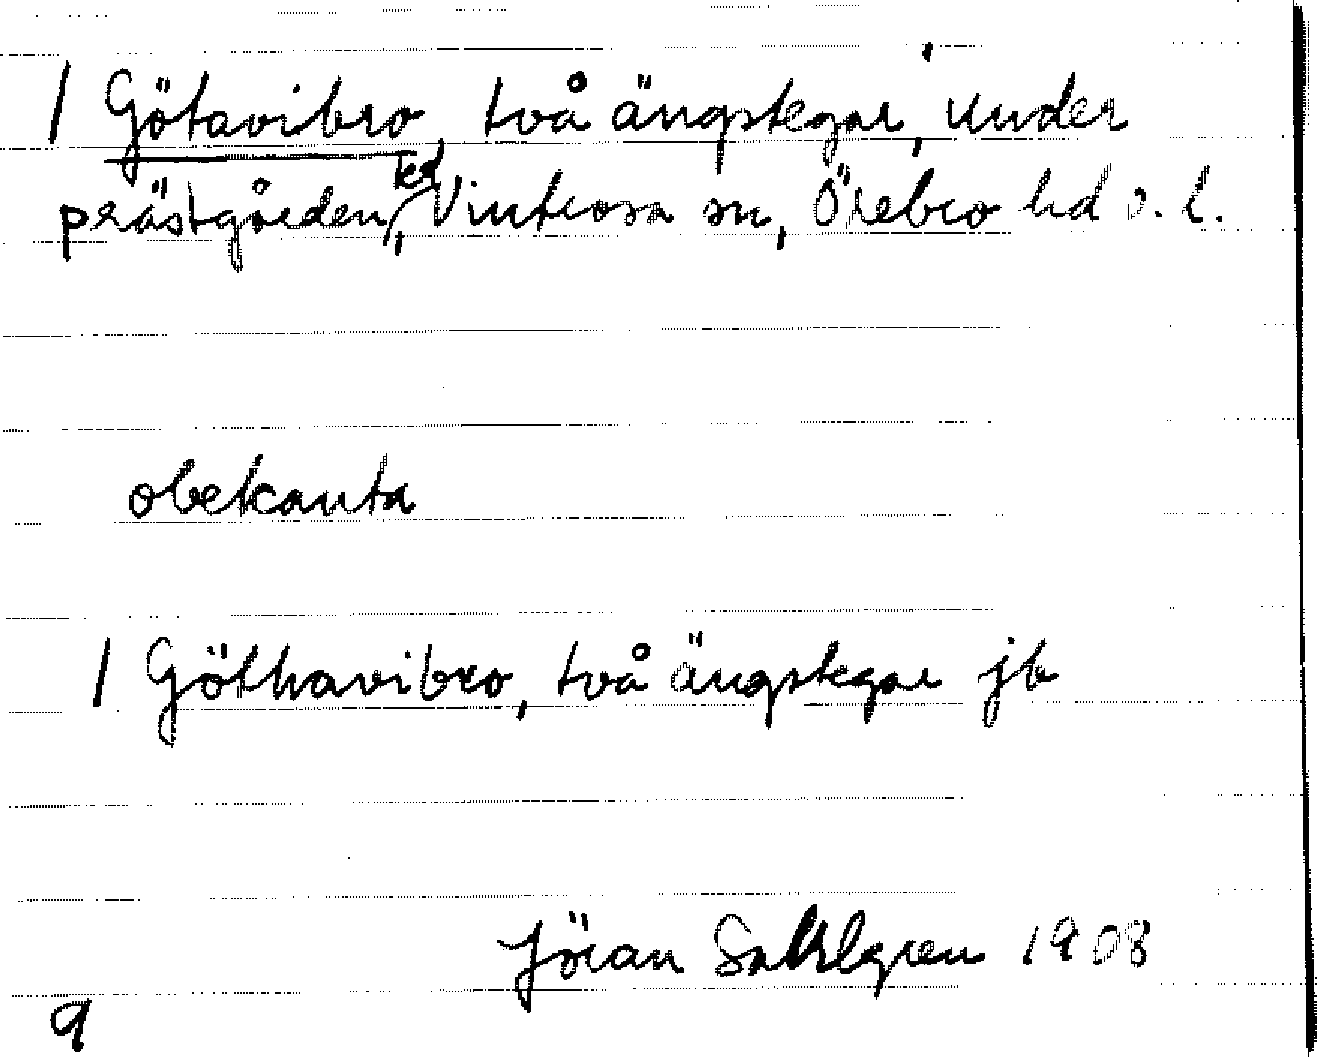 / Götavibro, två ängstegar, under
prästgården, Vintrosa sn, Örebro hd
obekanta
/ Göthavibro, två ängstegar jb
Jöran Sahlgren 1908
9